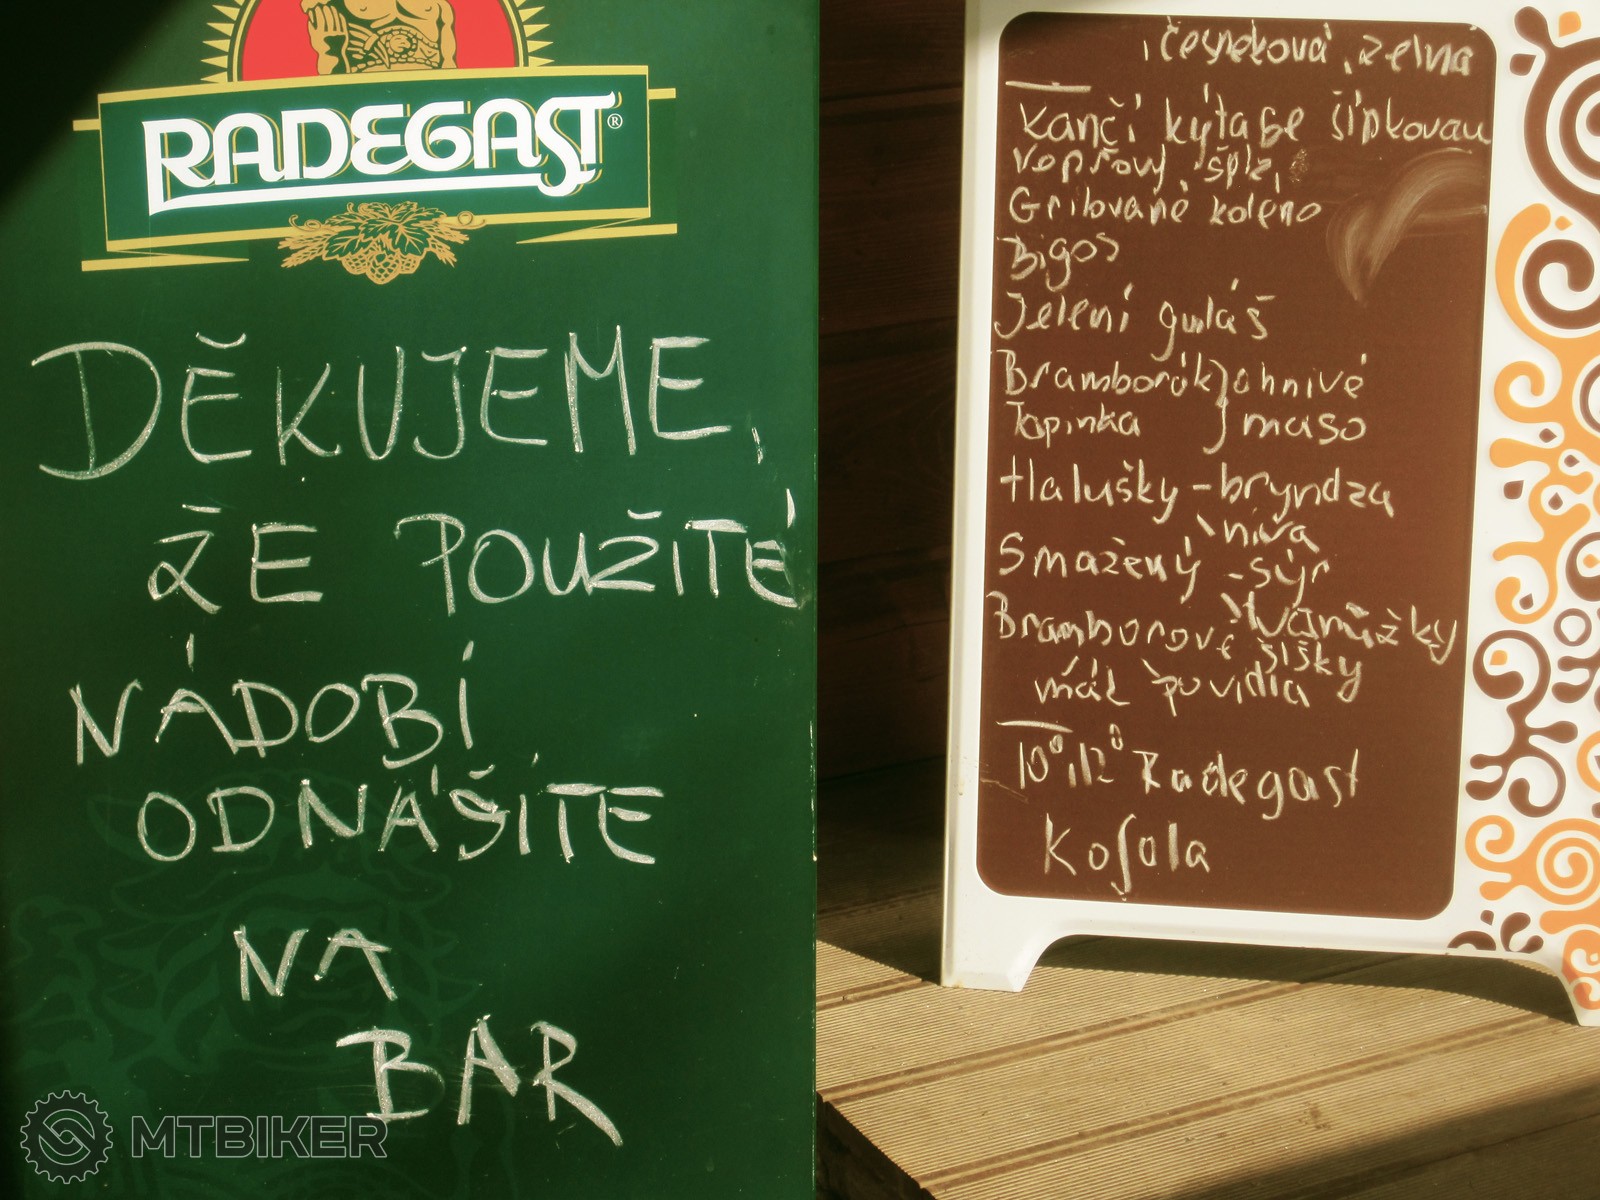 RADEGAST®
DĚKUJEME,
ŽE POUŽITÉ
NÁDOBÍ
ODNÁŠÍTE
NA
BAR
MTBIKER
česneková, zelná
Kančí kýta se šípkovou
Vepřový špíz
Grilované koleno
Bigos
Jelení guláš
Bramborák } ohnivé
Topinka } maso
Halušky - bryndza
- niva
Smažený - sýr
- tvarůžky
Bramborové šišky
mák povidla
10°, 12° Radegast
Kofola